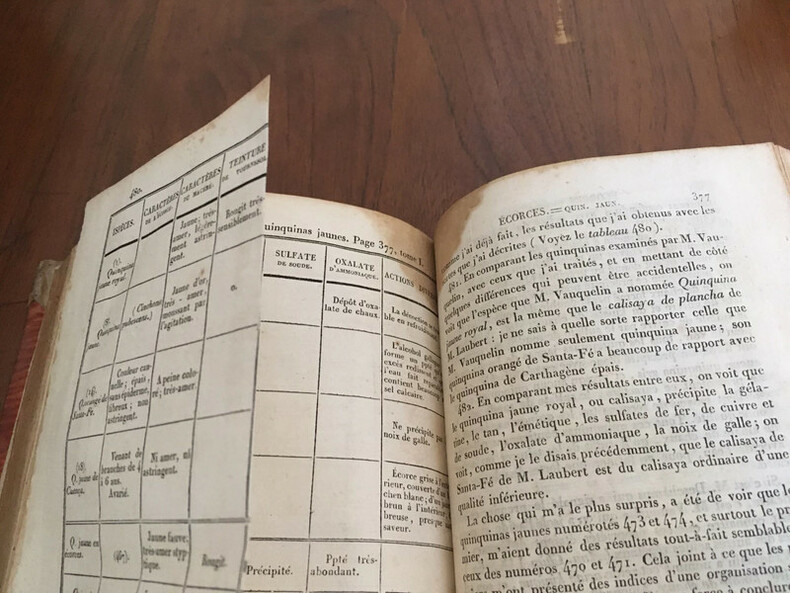 480.
ESPÈCES.
CARACTÈRES
DE L'ÉCORCE.
CARACTÈRES
DU MACÉRÉ.
TEINTURE
DE TOURNESOL.
Quinquina
jaune royal.
Jaune; très-
amer, légère-
ment astrin-
gent.
Rougit très-
sensiblement.
Quinquina
(Cinchona
pubescens.)
Jaune d'or,
très-amer,
moussant par
l'agitation.
o.
Q. orangé de
Santa-Fé.
Couleur can-
nelle; épais,
sans épiderme,
fibreux; non
astringent.
A peine colo-
ré; très-amer.
(18).
Q. jaune de
Cuenca.
Venant de
branches de 4
à 6 ans.
Avarié.
Ni amer, ni
astringent.
Q. jaune en
écorces.
(467).
Jaune fauve;
très-amer styp-
tique.
Rougit.
quinquinas jaunes. Page 377, tome I.
SULFATE
DE SOUDE.
OXALATE
D'AMMONIAQUE.
ACTIONS
Dépôt d'oxa-
late de chaux.
La décoction se
en refroidi
L'alcool
forme un ppté
excès redissout
l'eau fait repar
contient beaucoup
sel calcaire.
Ne précipite pas
noix de galle.
Écorce grise à l'
rieur, couverte d'un
chen blanc; d'un
brun à l'intérieur
breuse, presque
saveur.
Précipité.
Ppté très-
abondant.
ÉCORCES. = QUIN. JAUN.
377
comme j'ai déjà fait, les résultats que j'ai obtenus avec les
sortes que j'ai décrites (Voyez le tableau 480).
481. En comparant les quinquinas examinés par M. Vau-
quelin, avec ceux que j'ai traités, et en mettant de côté
quelques différences qui peuvent être accidentelles, on
voit que l'espèce que M. Vauquelin a nommée Quinquina
jaune royal, est la même que le calisaya de plancha de
M. Laubert : je ne sais à quelle sorte rapporter celle que
M. Vauquelin nomme seulement quinquina jaune; son
quinquina orangé de Santa-Fé a beaucoup de rapport avec
le quinquina de Carthagène épais.
482. En comparant mes résultats entre eux, on voit que
le quinquina jaune royal, ou calisaya, précipite la géla-
tine, le tan, l'émétique, les sulfates de fer, de cuivre et
de soude, l'oxalate d'ammoniaque, la noix de galle; on
voit, comme je le disais précédemment, que le calisaya de
Santa-Fé de M. Laubert est du calisaya ordinaire d'une
qualité inférieure.
La chose qui m'a le plus surpris, a été de voir que le
quinquinas jaunes numérotés 473 et 474, et surtout le pr
mier, m'aient donné des résultats tout-à-fait semblable
ceux des numéros 470 et 471. Cela joint à ce que les
m'ont présenté des indices d'une organisation
force à conclure